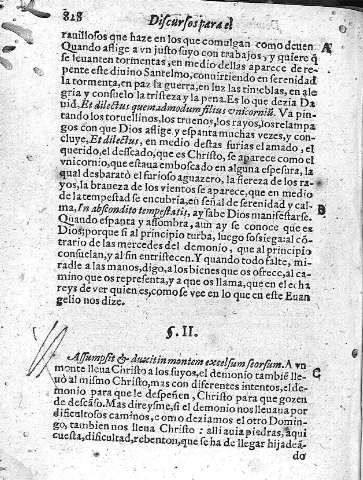 828 Discursos para el
rauillosos que haze en los que comulgan como deuen A
Quando aflige a vn justo suyo con trabajos, y quiere q̃
se leuanten tormentas, en medio dellas aparece de re-
pente este diuino Santelmo, conuirtiendo en serenidad
la tormenta, en paz la guerra, en luz las tinieblas, en ale
gria y consuelo la tristeza y la pena. Es lo que dezia Da
uid. Et dilectus quemadmodum filius vnicornium. Va pin-
tando los toruellinos, los truenos, los rayos, los relampa
gos con que Dios aflige y espanta muchas vezes, y con-
cluye, Et dilectus, en medio destas furias el amado, el
querido, el desseado, que es Christo, se aparece como el
vnicornio, que estaua emboscado en alguna espesura, la
qual desbaratò el furioso aguazero, la fiereza de los ra-
yos, la braueza de los vientos se aparece, que en medio
de la tempestad se encubria, en señal de serenidad y cal-
ma, In abscondito tempestatis, ay sabe Dios manifestarse. B
Quando espanta y assombra, aun ay se conoce que es
Dios; porque si al principio turba, luego sossiega: al cõ-
trario de las mercedes del demonio, que al principio
consuelan, y al fin entristecen. Y quando todo falte, mi-
radle a las manos, digo, a los bienes que os ofrece, al ca-
mino que os representa, y a que os llama, que en el echa
reys de ver quien es, como se vee en lo que en este Euan
gelio nos dize.
§. II.
Assumpsit & duxit in montem excelsum seorsum. A vn
monte lleua Christo a los suyos, el demonio tambiẽ lle- C
uò al mismo Christo, mas con diferentes intentos, el de-
monio para que le despeñen, Christo para que gozen
de descãso. Mas direysme, si el demonio nos lleuaua por
dificultosos caminos, como deziamos el otro Domin-
go, tambien nos lleua Christo: alli auia piedras, aqui
cuesta, dificultad, rebenton, que se ha de llegar hijadeã-
do